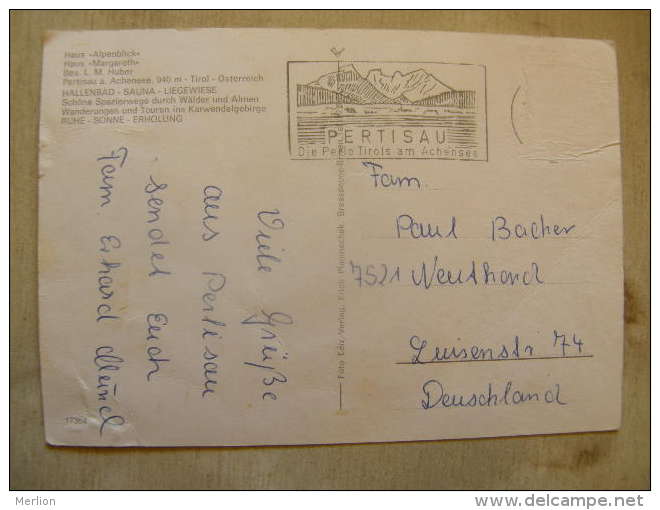 Haus »Alpenblick«
Haus »Margareth«
Bes. L. M. Huber
Pertisau a. Achensee, 940 m - Tirol - Österreich
HALLENBAD - SAUNA - LIEGEWIESE
Schöne Spazierwege durch Wälder und Almen
Wanderungen und Touren ins Karwendelgebirge
RUHE - SONNE - ERHOLUNG
PERTISAU
Die Perle Tirols am Achensee
Viele Grüße
aus Pertisau
sendet Euch
Fam. Erhard
Foto Edix Verlag, Erich
Fam.
Paul Bacher
7521 Neuthard
Luisenstr 74
Deuschland
17364
Merlion
www.delcampe.net